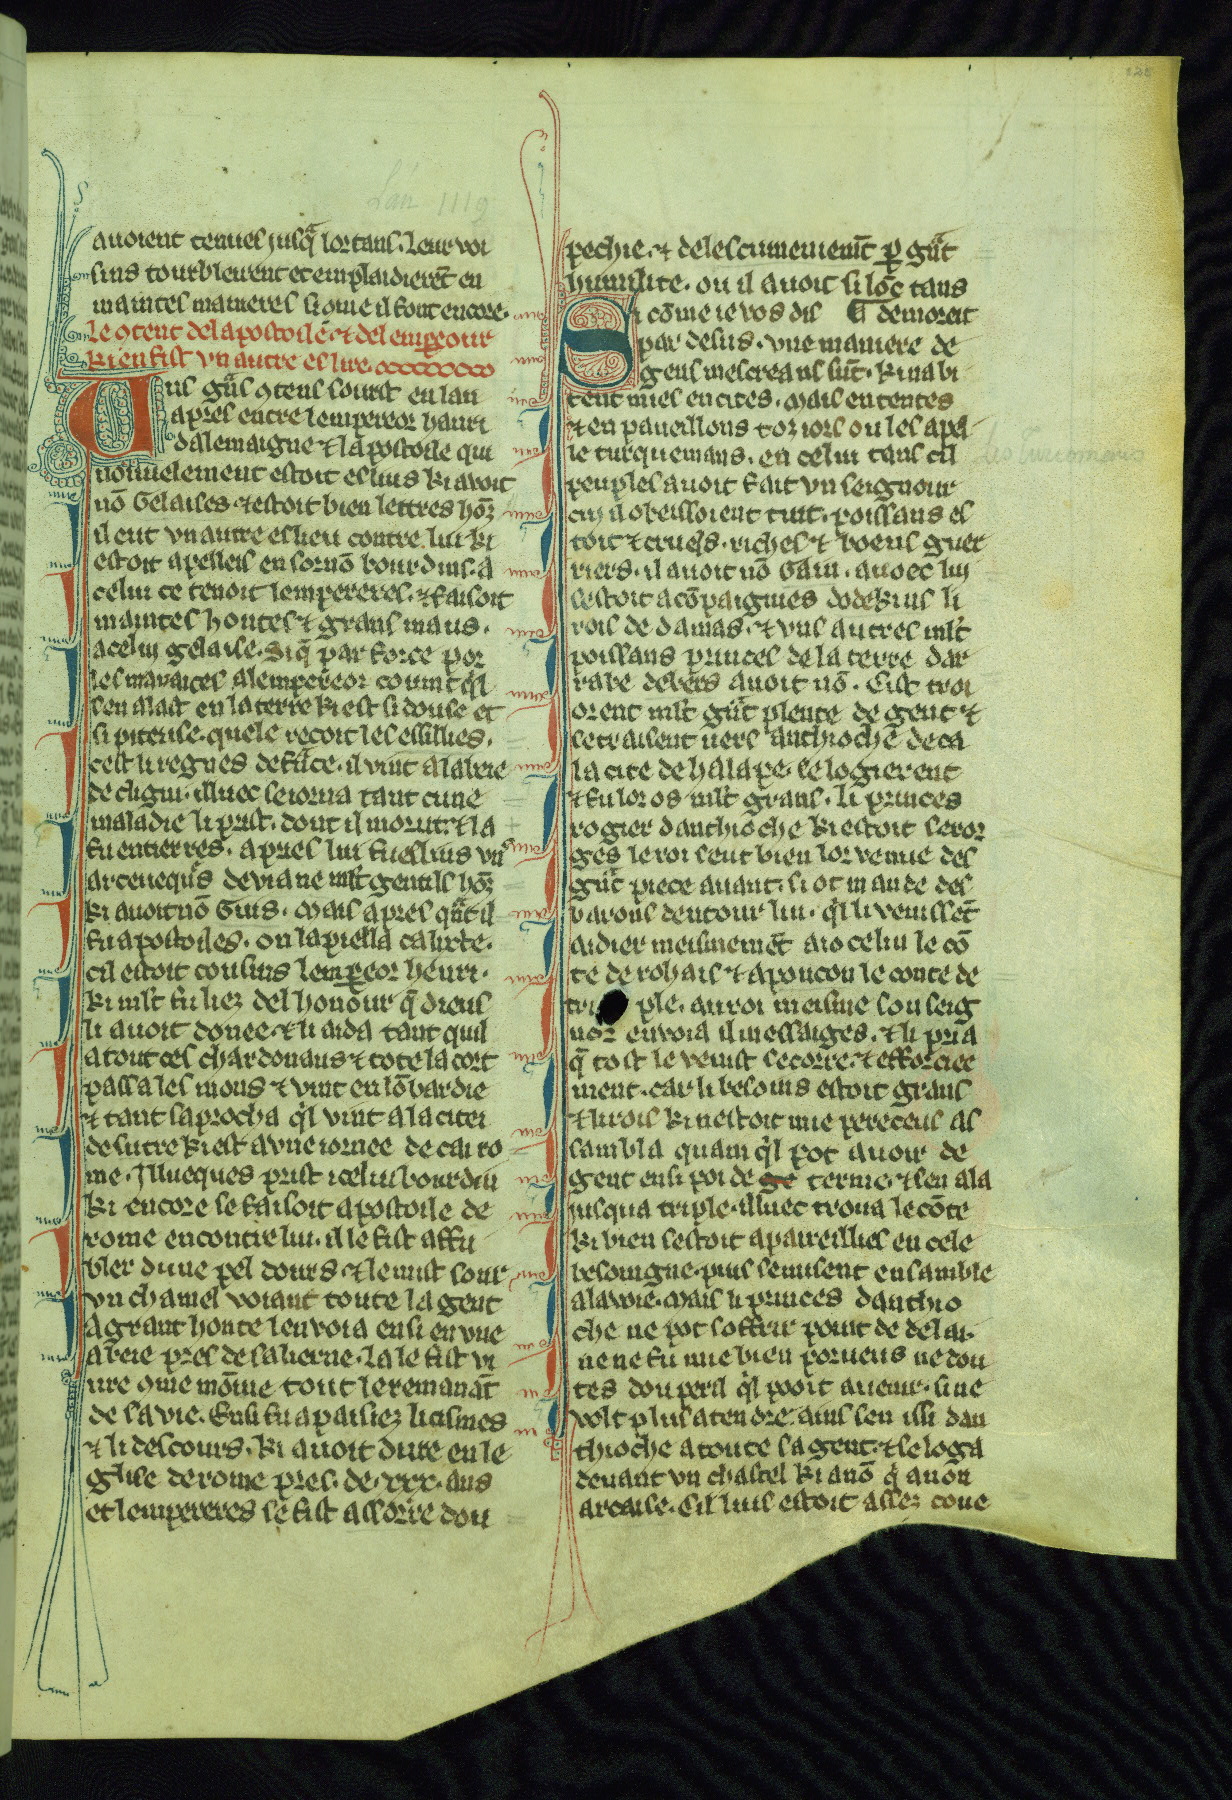 Lan 1119
avoient tenues jusq̃ lor tans. Leur voi
sins tourblerent et emplaidierẽt en
maintes manieres si ꝯme il font encore.
Le ꝯtent del apostoile ⁊ del emp̱eour
ki en fist un autre eslire.
Uns gñs ꝯtens sourst en lan
apres entre lempereor hanri
dalemaigne ⁊ lapostoile qui
nouuelement estoit eslius ki avoit
nõ Gelaises ⁊ estoit bien lettres hõz
il eut un autre eslieu contre lui ki
estoit apelleis en sornõ bourdins. a
celui ce tenoit lempereres. ⁊ faisoit
maintes hontes ⁊ grans maus.
a celui gelaise. Si q̃ par force por
les mavaices al empereor couint q̃l
sen alast en la terre ki est si douse et
si piteuse. quele recoit les essillies.
cest li regnes de frãce. il vint al abeie
de cligni. illuec seiorna tant cune
maladie li prist. dont il morut. ⁊ la
fu entierres. apres lui fu eslius uns
arceuequs de viane ml̃t gentils hõz
ki avoit nõ Guis. Mais apres qñt il
fu apostoiles. on lapiella calixte.
cil estoit cousins lemp̱eor henri.
ki ml̃t fu liez del honour q̃ dieus
li avoit donee. ⁊ li aida tant quil
a tout ces chardonaus ⁊ tote la cort
passa les mons ⁊ vint en lõbardie
⁊ tant saprocha q̃l vint a la citei
de sutre ki est a une iornee de cai ro
me. Illueques prist icelui bourdin
ki encore se faisoit apostoile de
rome encontre lui. il le fist affu
bler dune pel dours. ⁊ le mist sour
un chamel voiant toute la gent
a grant honte lenvoia ensi en une
abeie pres de salierne. la le fist vi
ure ꝯme mõine tout le remanãt
de sa vie. Ensi fu apaisiez li cismes
⁊ li descours. ki avoit dure en le
glise de rome pres. de .xxx. ans
et lempereres se fist assorre dou
pechie. ⁊ del escumeniemẽt p̱ gñt
humilite. ou il avoit si lõc tans
Si cõme ie vos dis demoreit
par desus. une maniere de
gens mescreans sũt. ki nabi
tent mies en cites. Mais en tentes
⁊ en paveillons toz iors ou les apel
le turquemans. en celui tans cil
peuples avoit fait un seignour
cui il obeissoient tuit. poissans es
toit ⁊ cruels. riches ⁊ boens guer
riers. il avoit nõ Gazi. avoec lui
sestoit acõpaignies dodekins li
rois de damas. ⁊ uns autres ml̃t
poissans princes de la terre dar
rabe debeis avoit nõ. Cist troi
orent ml̃t gñt plente de gent ⁊
se traisent vers anthioche de ca
la cite de halape. se logierent
⁊ fu lor os ml̃t grans. li princes
rogier danthioche ki estoit seror
ges le roi seut bien lor venue des
gñt piece avant. si ot mande des
barons dentour lui. q̃l li venissẽt
aidier meismemẽt a iocelin le cõ
te de rohais ⁊ a poncon le conte de
triple. au roi meisme son seig
nor envoia il messaiges. ⁊ li pria
q̃ tost le venist secorre. ⁊ efforciee
ment. car li besoins estoit grans
⁊ li rois ki nestoit mie pereceus as
sambla quam q̃l pot avoir de
gent en si poi de ge terme. ⁊ sen ala
iusqua triple. illuec trova le cõte
ki bien sestoit apareillies en cele
besoingne. puis se misent ensamble
a la voie. Mais li princes danthio
che ne pot soffrir point de delai.
ne ne fu mie bien porveus ne dou
tes dou peril q̃l pooit avenir. si ne
volt plus atendre. ains sen issi dan
thioche a toute sa gent. ⁊ se loga
devant un chastel ki a nõ q̃ a nõn
artaise. Cil lius estoit assez cove